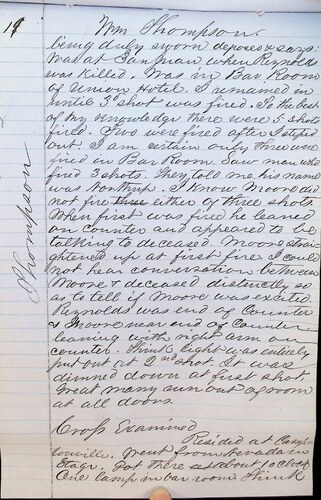 19
Wm Thompson.
being duly sworn deposes & says:
Was at San Juan when Reynolds
was killed. Was in Bar Room
of Union Hotel. I remained in
until 3d shot was fired. To the best
of my knowledge there were 5 shots
fired. Two were fired after I steped
out. I am certain only three were
fired in Bar Room. Saw man who
fired 3 shots. They told me his name
was Northup. I Know Moore did
not fire three either of three shots
When first was fired he leaned
on counter and appeared to be
talking to deceased. Moore strai-
ghtened up at first fire I could
not hear conversation between
Moore & deceased distinctly so
as to tell if Moore was excited.
Reynolds was end of Counter
& Moore near end of Counter
leaning with right arm on
counter. Think light was entirely
put out at 2nd shot. It was
dimned down at first shot.
Great many run out of room
at all doors.
Cross Examined
Resided at
went from Nevada in
Stage. Got there at about 10 oclock
One lamp in bar room I think
Thompson